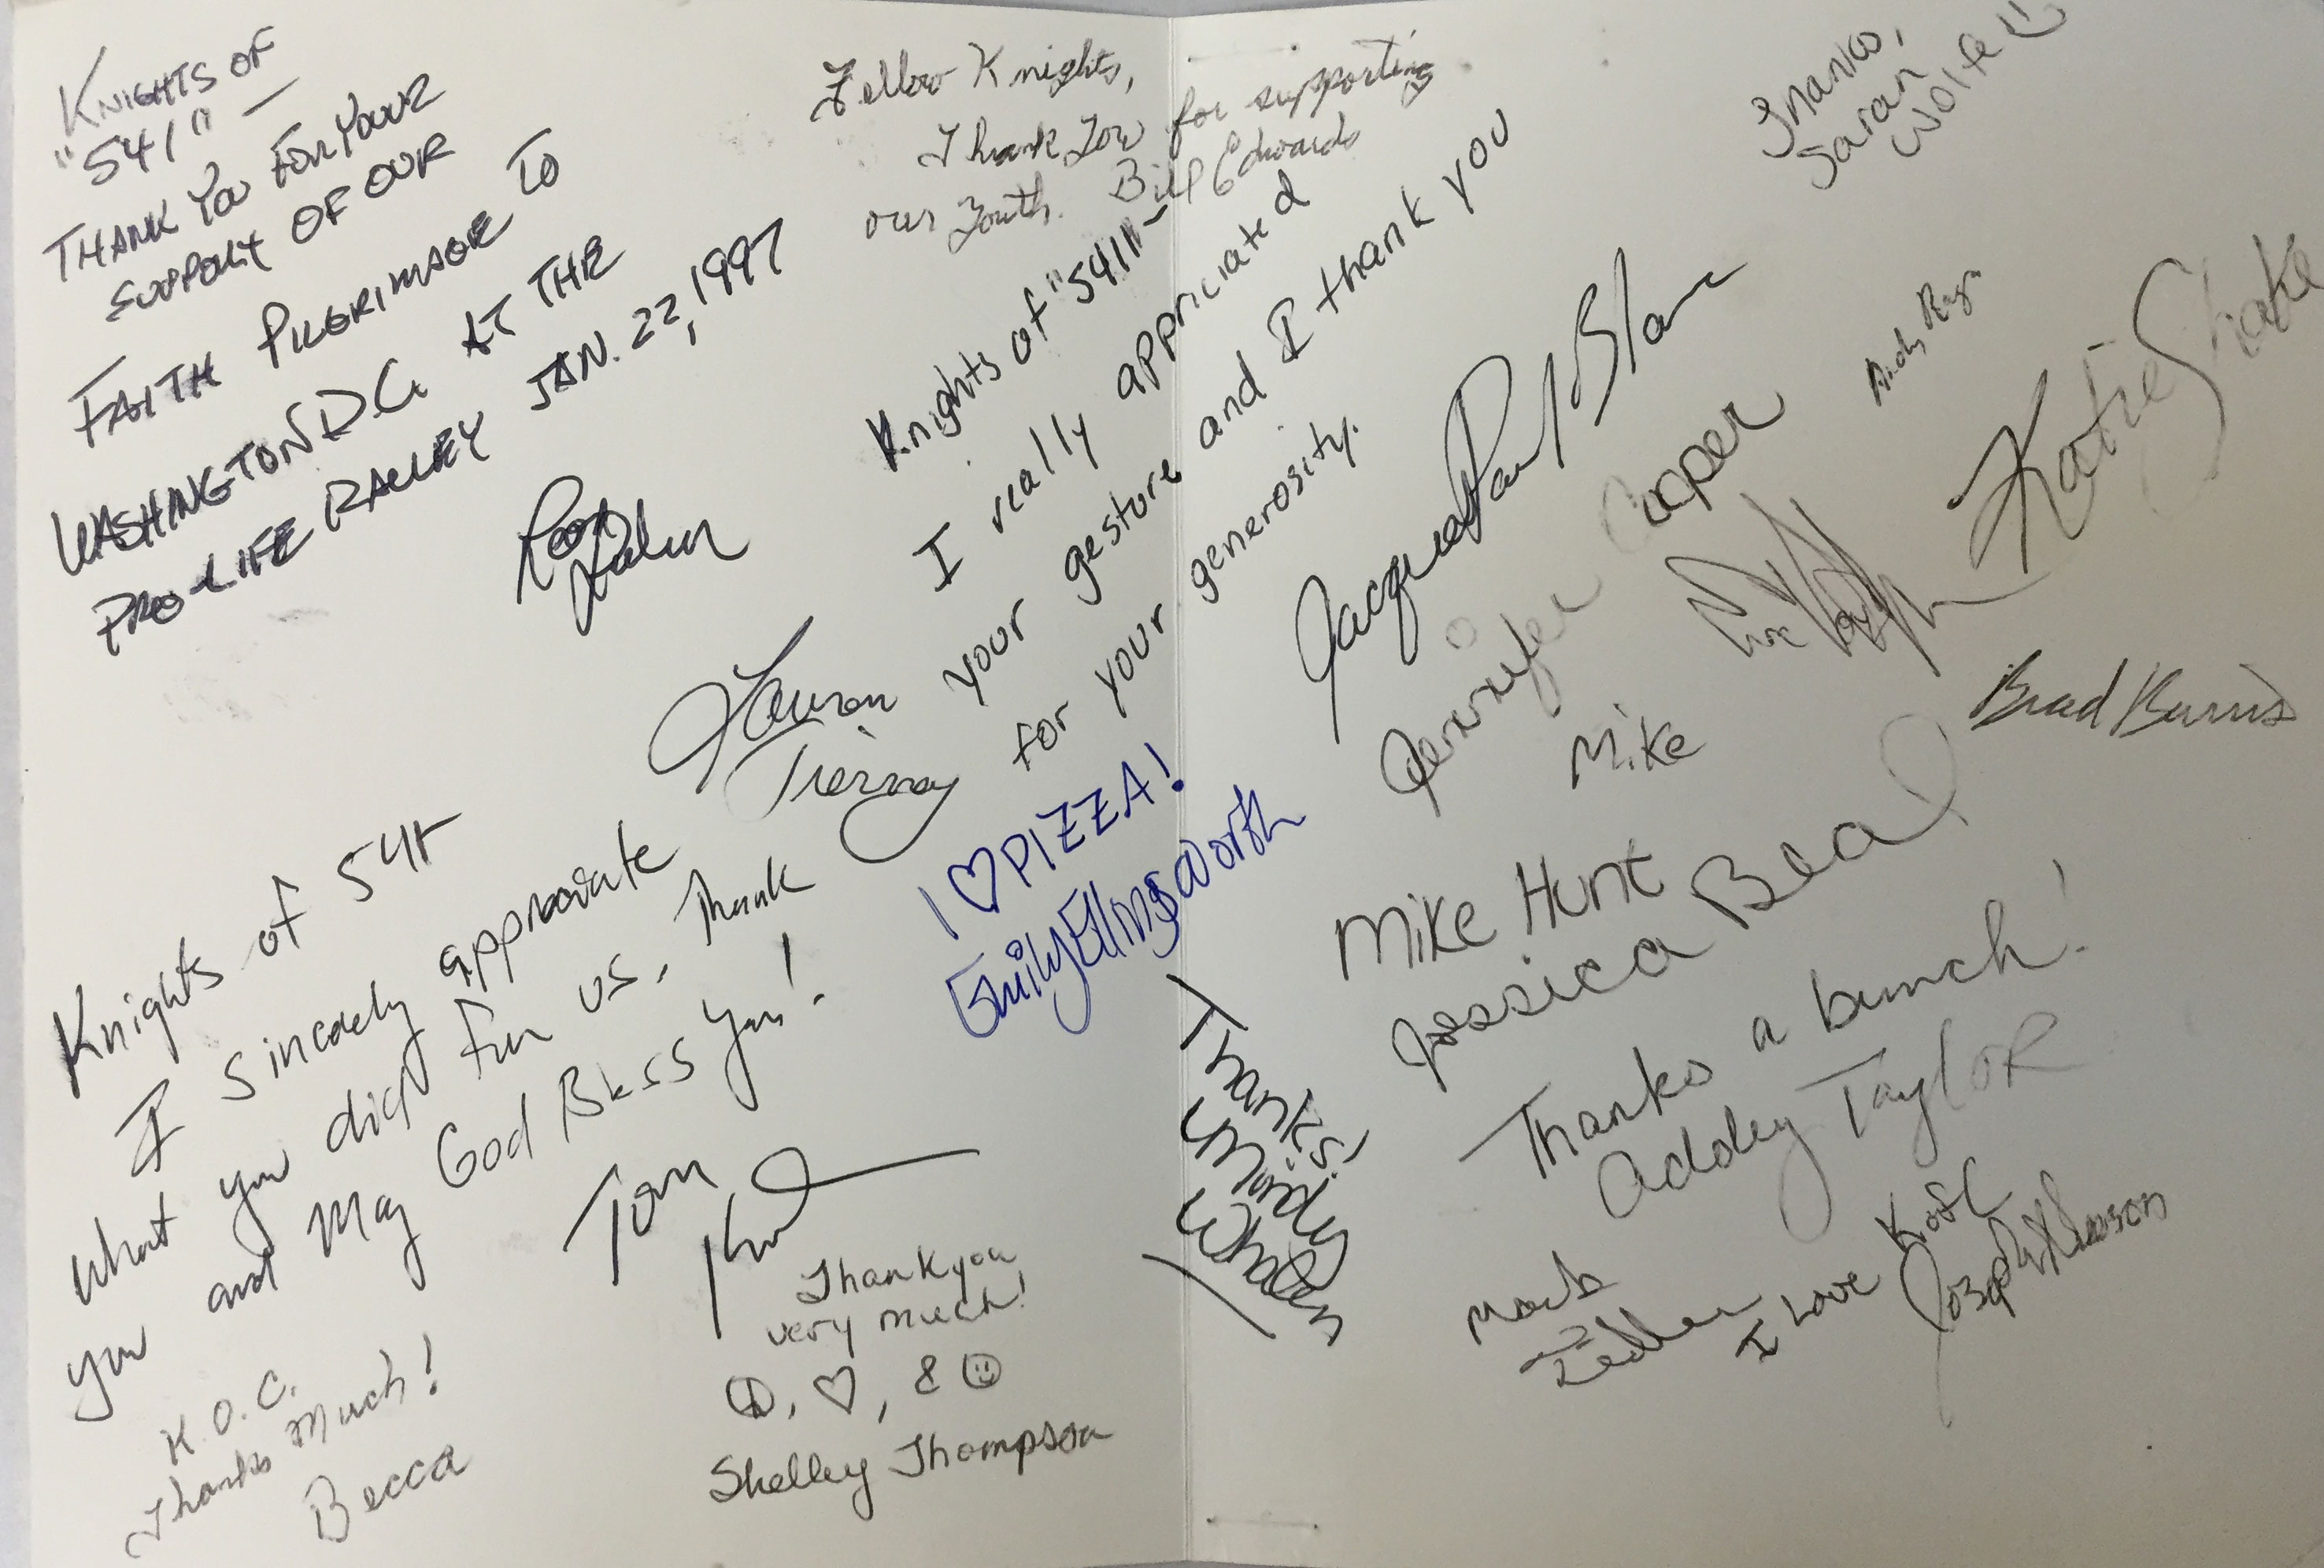 KNIGHTS OF
"5411" —
THANK YOU FOR YOUR
SUPPORT OF OUR
FAITH PILGRIMAGE TO
WASHINGTON D.C. AT THE
PRO-LIFE RALLEY JAN. 22, 1997
Fellow Knights,
Thank You for supporting
our Youth. Bill Edwards
Knights of "5411"-
I really appriciated
your gesture and I thank you
for your generosity.
Jacquea Paul Blanc
Lauren
Tierney
I ♡ PIZZA!
Emily Ellingsworth
Knights of 5411
I sincerely appreciate
what you did for us. Thank
you and May God Bless You!
Tom
K.O.C.
Thanks Much!
Becca
Thank you
very much!
☮, ♡, & ☺
Shelley Thompson
Thanks,
Sarah
Wolfe
Andy
Katie Shake
Jennifer Cooper
Brad Burris
Mike
Mike Hunt
Jessica Beal
Thanks a bunch!
Addey Taylor
Thanks!
Mindy
Whatley
Mark
I Love K of C
Joseph